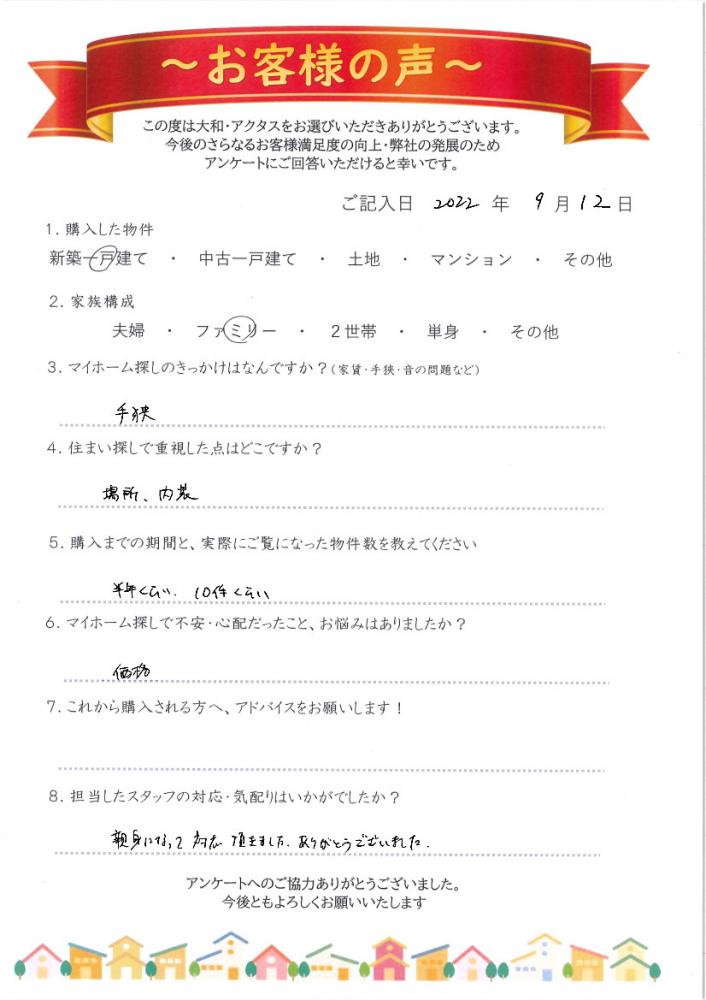 ～お客様の声～
この度は大和・アクタスをお選びいただきありがとうございます。
今後のさらなるお客様満足度の向上・弊社の発展のため
アンケートにご回答いただけると幸いです。
ご記入日 2022 年 9 月 12 日
1. 購入した物件
新築一戸建て ・ 中古一戸建て ・ 土地 ・ マンション ・ その他
2. 家族構成
夫婦 ・ ファミリー ・ 2世帯 ・ 単身 ・ その他
3. マイホーム探しのきっかけはなんですか？(家賃・手狭・音の問題など)
手狭
4. 住まい探しで重視した点はどこですか？
場所、内装
5. 購入までの期間と、実際にご覧になった物件数を教えてください
半年くらい、10件くらい
6. マイホーム探しで不安・心配だったこと、お悩みはありましたか？
価格
7. これから購入される方へ、アドバイスをお願いします！
8. 担当したスタッフの対応・気配りはいかがでしたか？
親身になって対応頂きました。ありがとうございました。
アンケートへのご協力ありがとうございました。
今後ともよろしくお願いいたします